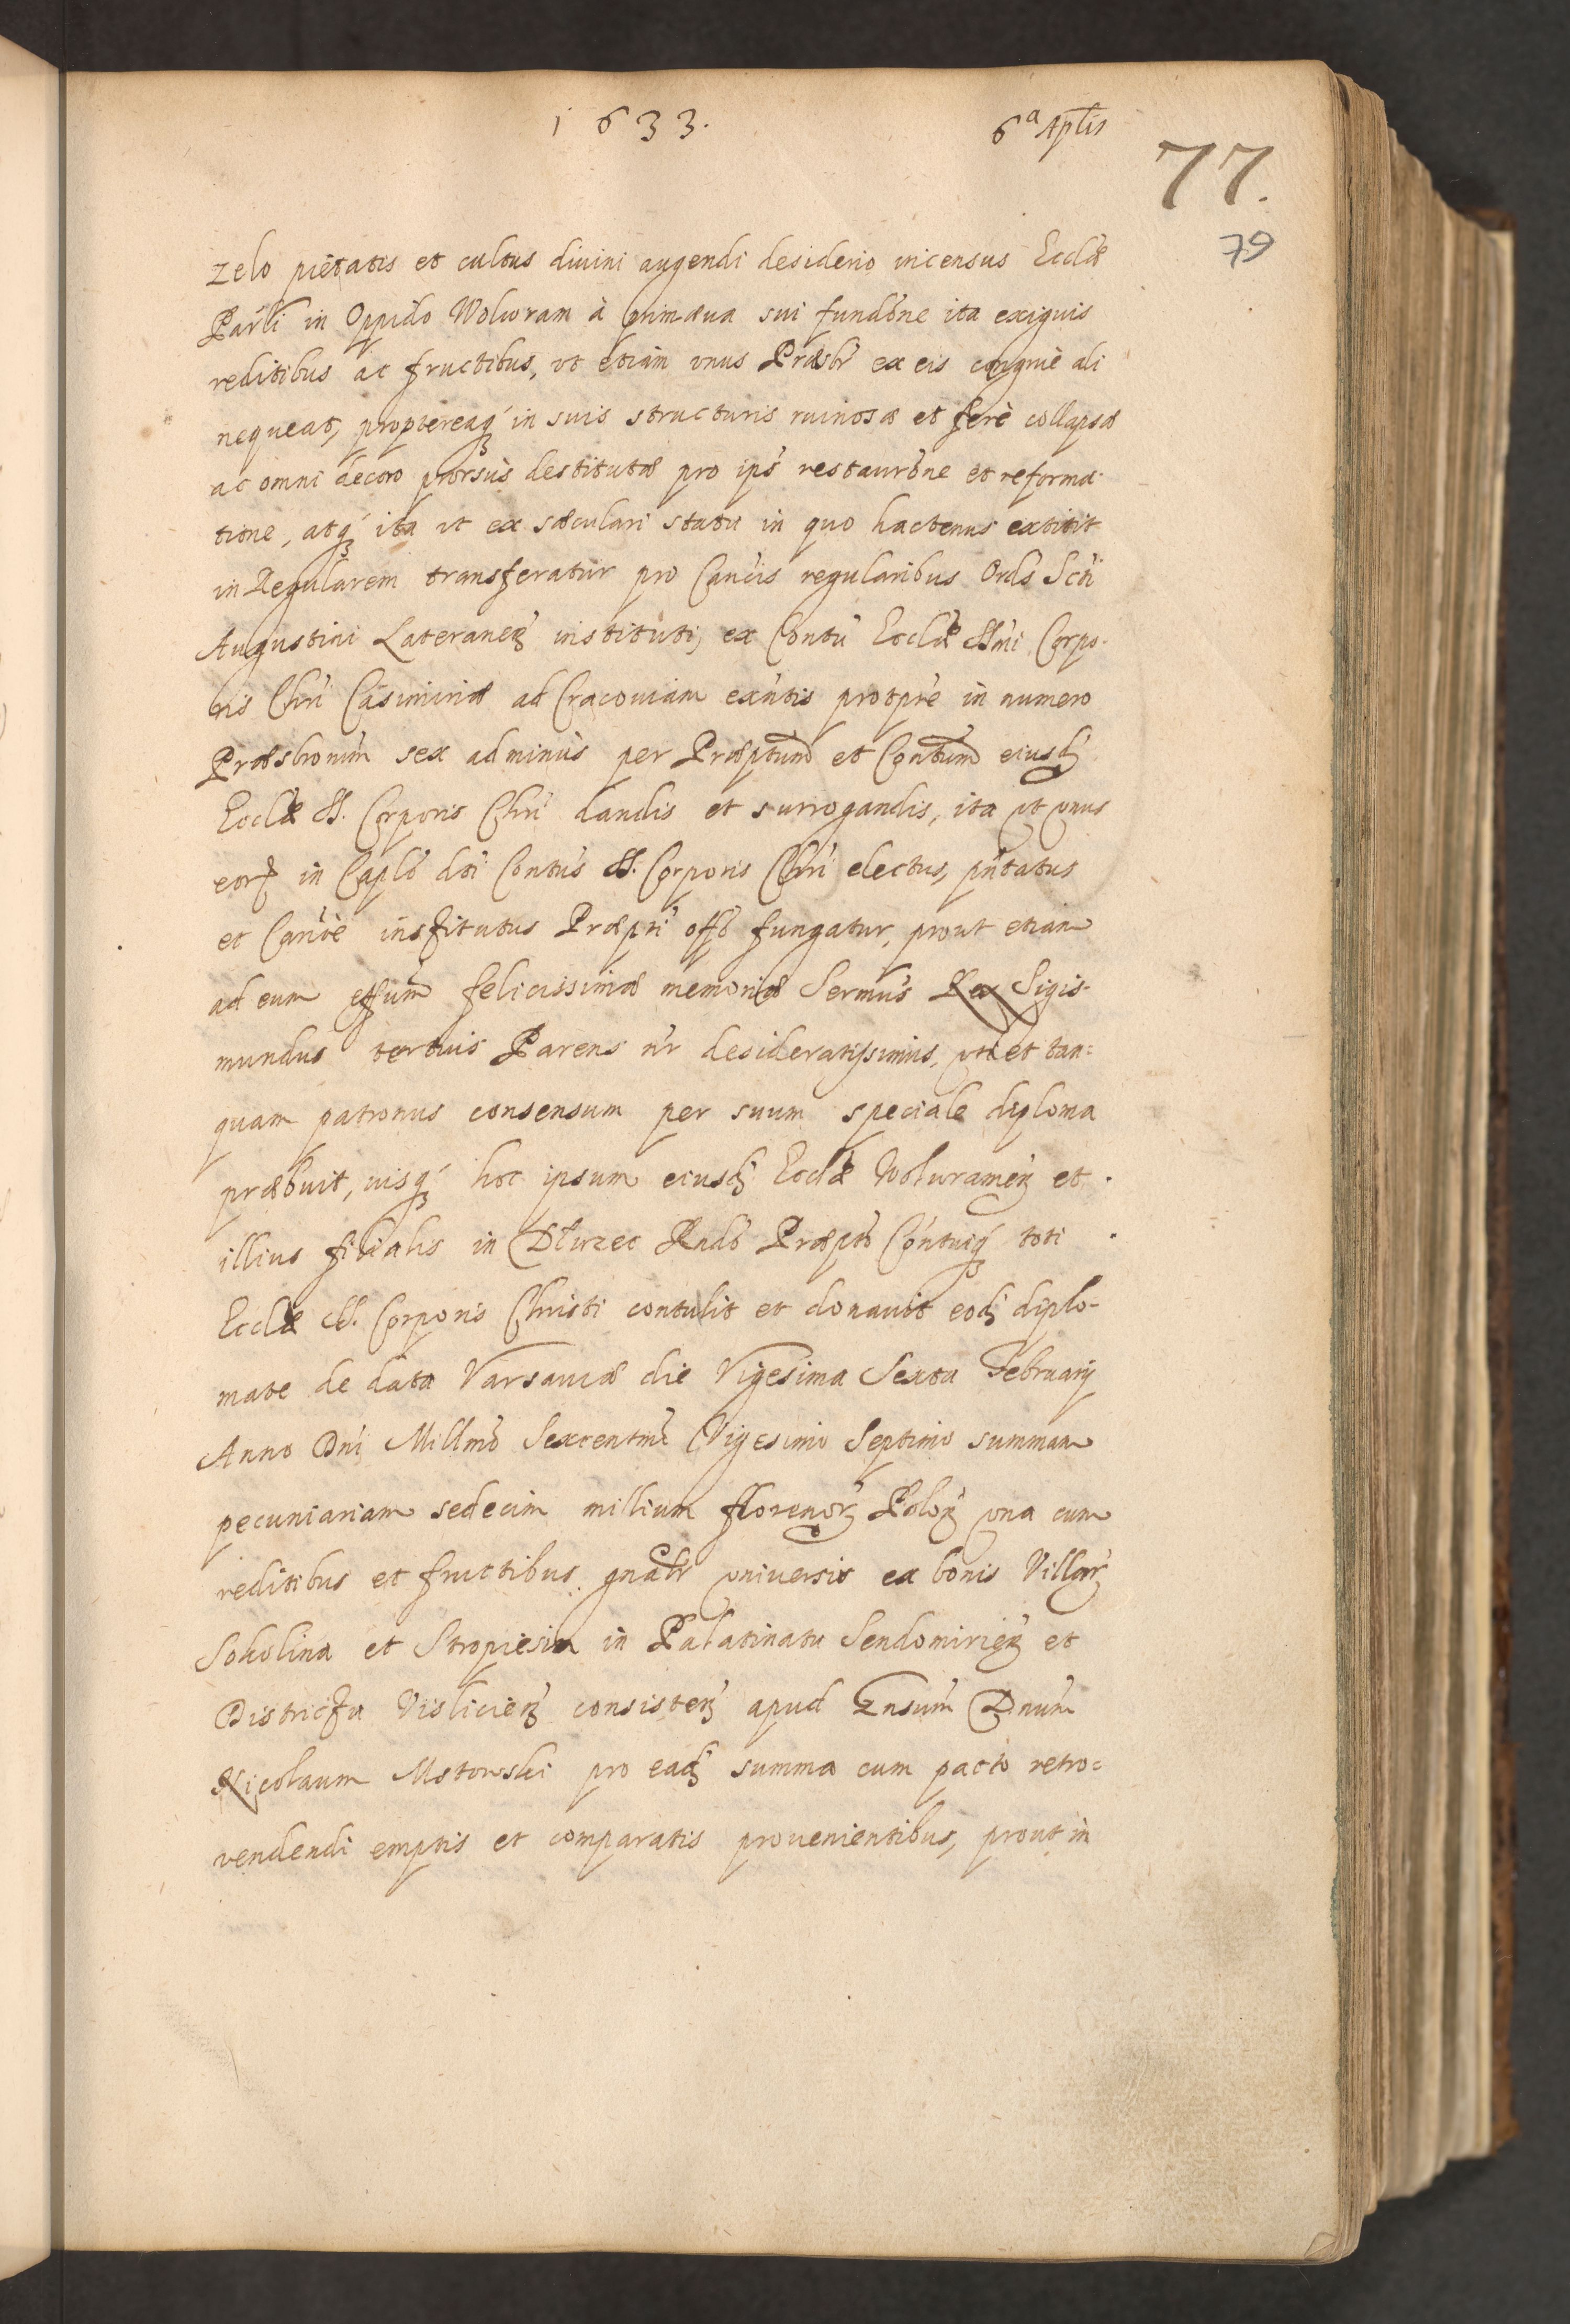 1633.
6ª Aplis
77.
79
zelo pietatis et cultus diuini augendi desiderio incensus Ecclæ
Parli in Oppido Wolwram à primæua sui fundõne ita exiguis
reditibus ac fructibus, vt etiam vnus Præsbr ex eis congruè ali
nequeat, proptereaq́ in suis structuris ruinosæ et ferè collapsæ
ac omni decoro prorsùs destitutæ pro ips restaurõne et reforma-
tione, atq́ ita vt ex sæculari statu in quo hactenus extitit
in Regularem transferatur pro Cancis regularibus Ords Scti
Augustini Lateraneń instituti, ex Contu Ecclæ SSmi Corpo-
ris Chri Casimiriæ ad Cracouiam exntis protpre in numero
Præsbrorum sex ad minùs per Præptum et Contum eiusd
Ecclæ SS. Corporis Chri dandis et surrogandis, ita vt vnus
eor in Caplo dti Contus SS. Corporis Chri electus, pntatus
et Cancè institutus Præpti offo fungatur, prout etiam
ad eum effum felicissimæ memoriæ Sermus Rex Sigis-
mundus tertius Parens nr desideratissimus, vti et tan=
quam patronus consensum per suum speciale diploma
præbuit, iusq́ hoc ipsum eiusd Ecclæ Wolurameń et
illius filialis in Dłurzec Rndo Præpto Contuiq́ toti
Ecclæ SS. Corporis Christi contulit et donauit eod diplo-
mate de data Varsauiæ die Vigesima Sexta Februarij
Anno Dni Millmo Sexcentmo Vigesimo Septimo summam
pecuniariam sedecim millium florenor Poloń vna cum
reditibus et fructibus gnalr vniuersis ex bonis Villar
Sokolina et Stropiesin in Palatinatu Sendomirień et
Districtu Vislicień consisteń apud Gnsum Dnum
Nicolaum Mstowski pro ead summa cum pacto retro=
vendendi emptis et comparatis prouenientibus, prout in